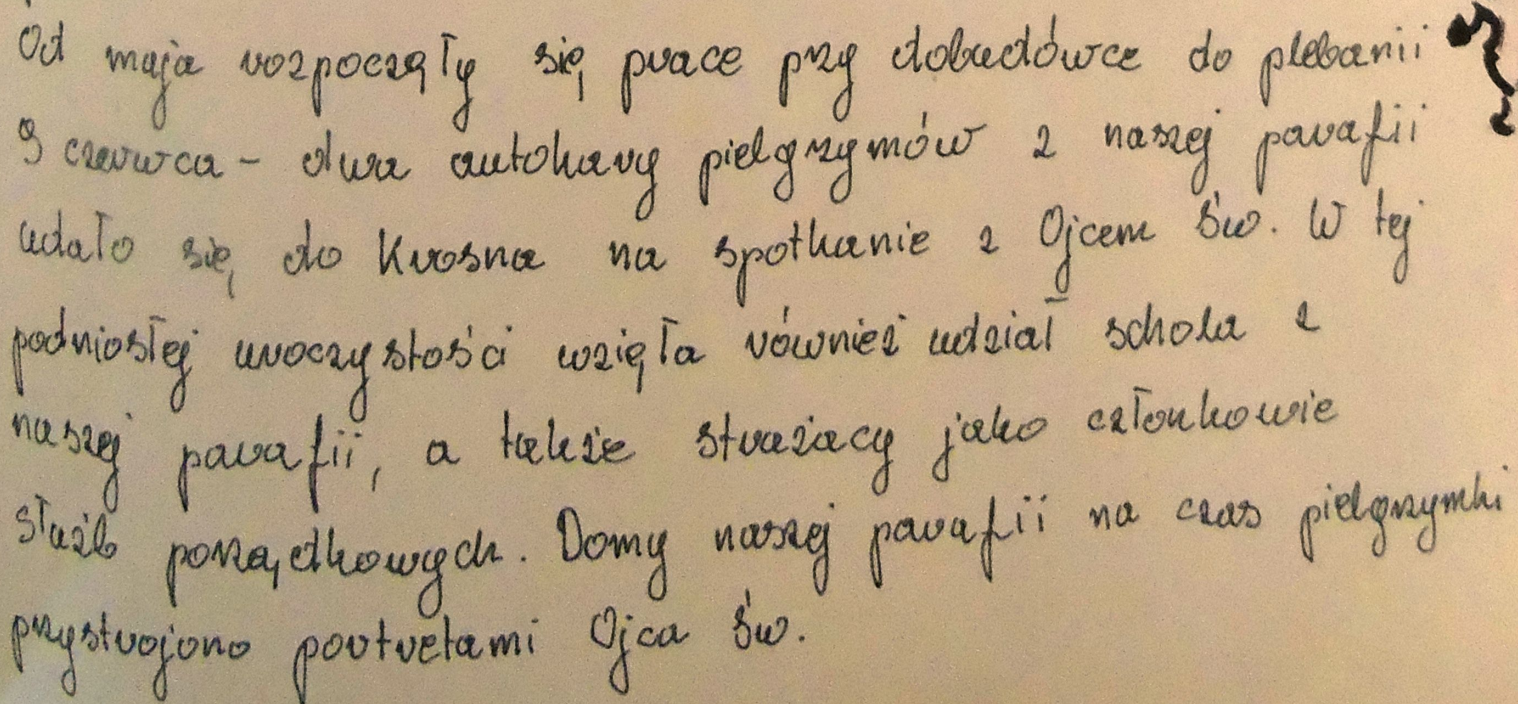 Od maja rozpoczęły się prace przy dobudówce do plebanii
9 czerwca - dwa autokary pielgrzymów z naszej parafii
udało się do Krosna na spotkanie z Ojcem Św. W tej
podniosłej uroczystości wzięła również udział schola z
naszej parafii, a także strażacy jako członkowie
służb porządkowych. Domy naszej parafii na czas pielgrzymki
przystrojono portretami Ojca Św.